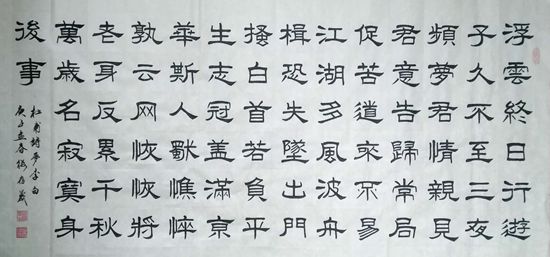 浮雲終日行遊
子久不至三夜
頻夢君情親見
君意告歸常局
促苦道來不易
江湖多風波舟
楫恐失墜出門
搔白首若負平
生志冠蓋滿京
華斯人獨憔悴
孰云网恢恢將
老身反累千秋
萬歲名寂寞身
後事
杜甫詩夢李白
庚子立春